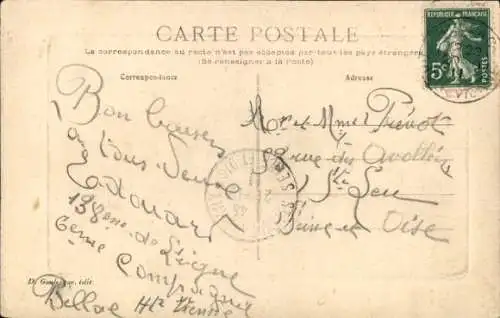 CARTE POSTALE
La correspondance au recto n'est pas acceptée par tous les pays étrangers
(Se renseigner à la Poste)
Correspondance
Adresse
REPUBLIQUE FRANÇAISE
5c
POSTES
Bon baisers
a tous deux
Edouard
138ème de Ligne
6ème Compagnie
Bellac Hte Vienne
Mr et Mme Prévot
rue des
St Leu
Seine et Oise
édit